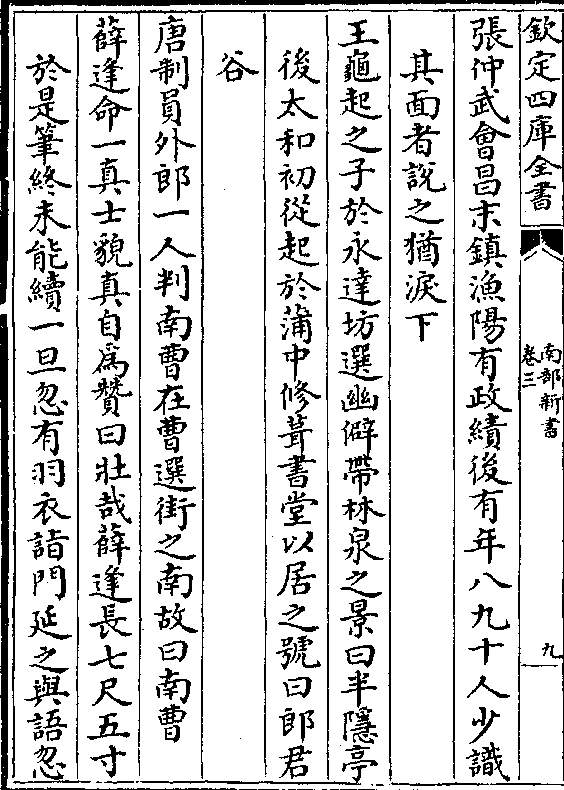 欽定四庫全書
南部新書
卷三
九
張仲武會昌末鎮漁陽有政績後有年八九十人少識
其面者說之猶淚下
王龜起之子於永達坊選幽僻帶林泉之景曰半隱亭
後太和初從起於蒲中修葺書堂以居之號曰郎君
谷
唐制員外郎一人判南曹在曹選街之南故曰南曹
薛逢命一真士貌真自為贊曰壯哉薛逢長七尺五寸
於是筆終未能續一旦忽有羽衣詣門延之與語忽